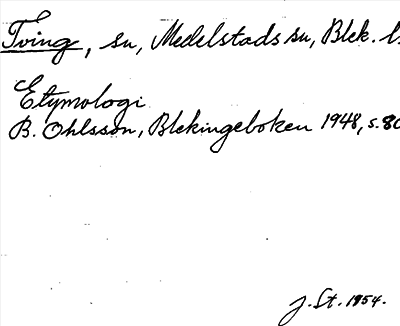 Tving, sn, Medelstads sn, Blek. l.
Etymologi
B. Ohlsson, Blekingeboken 1948, s. 80
J. St. 1954.